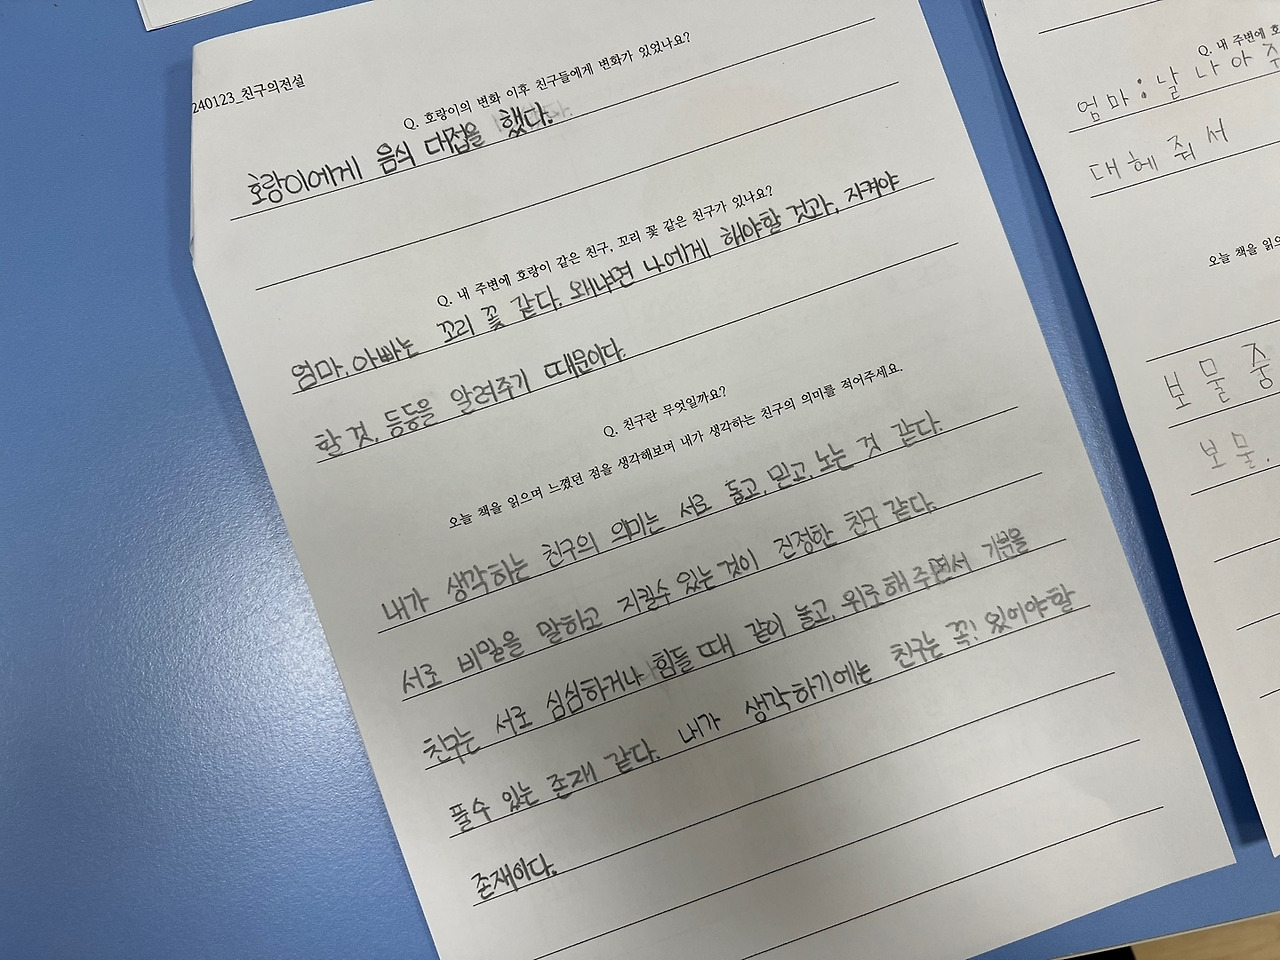 240123_친구의전설
Q. 호랑이의 변화 이후 친구들에게 변화가 있었나요?
호랑이에게 음식 대접을 했다.
Q. 내 주변에 호랑이 같은 친구, 꼬리 꽃 같은 친구가 있나요?
엄마, 아빠는 꼬리 꽃 같다. 왜냐면 나에게 해야할 것과, 지켜야
할 것, 등등을 알려주기 때문이다.
Q. 친구란 무엇일까요?
오늘 책을 읽으며 느꼈던 점을 생각해보며 내가 생각하는 친구의 의미를 적어주세요.
내가 생각하는 친구의 의미는 서로 돕고, 믿고, 노는 것 같다.
서로 비밀을 말하고 지킬수 있는 것이 진정한 친구 같다.
친구는 서로 심심하거나 힘들 때 같이 놀고, 위로해 주면서 기분을
풀수 있는 존재 같다. 내가 생각하기에는 친구는 꼭! 있어야할
존재이다.
Q. 내 주변에
엄마 : 날 나아
대해줘서
오늘 책을 읽으
보물 중
보물.